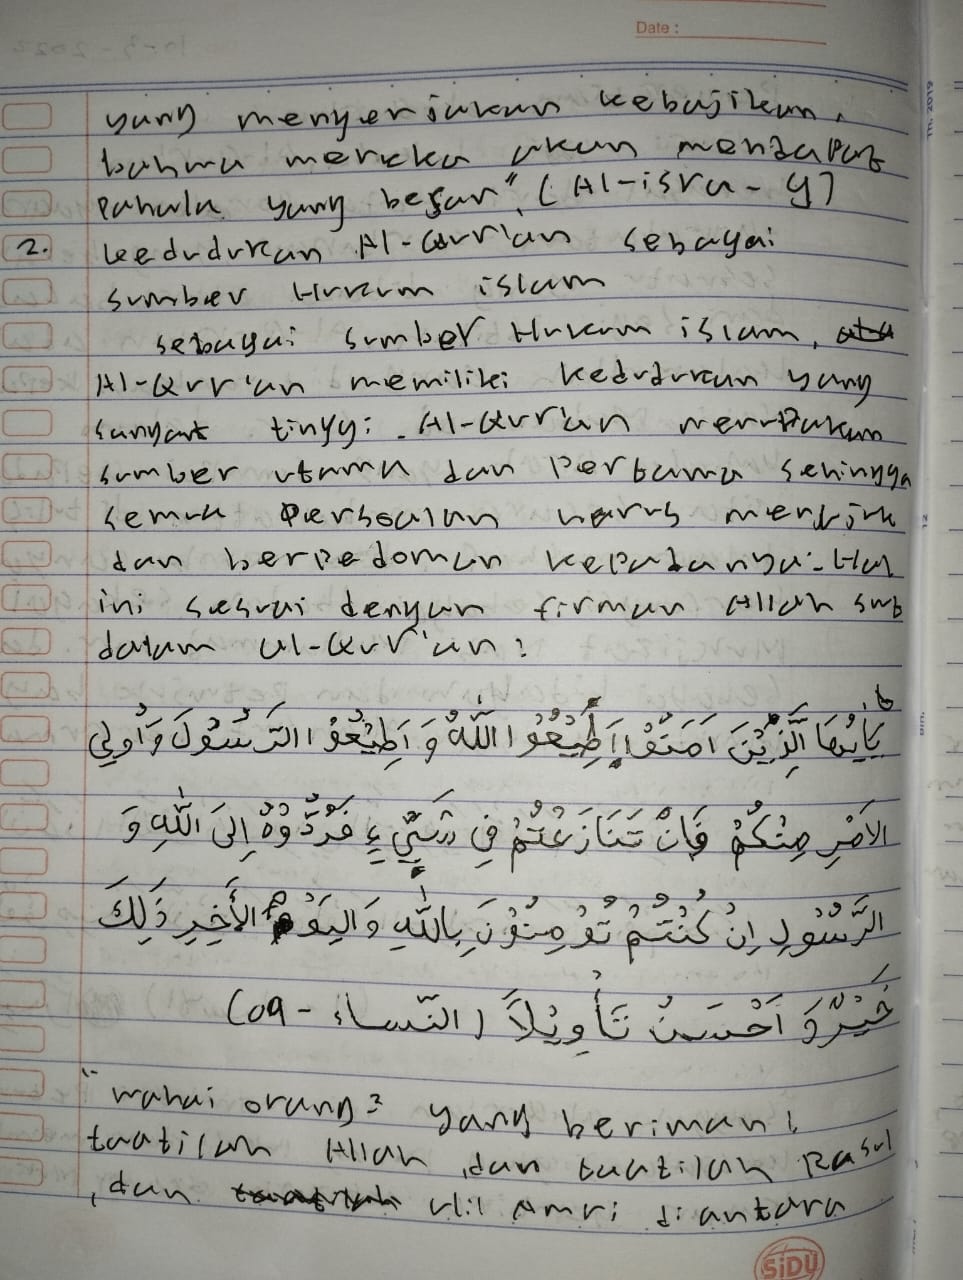 Date :
yang mengerjakan kebajikan,
bahwa mereka akan mendapat
pahala yang besar". (Al-isra - 9)
2. kedudukan Al-Qur'an sebagai
sumber Hukum islam
sebagai sumber Hukum islam,
Al-Qur'an memiliki kedudukan yang
sangat tinggi. Al-Qur'an merupakan
sumber utama dan pertama sehingga
semua persoalan harus merujuk
dan berpedoman kepadanya. Hal
ini sesuai dengan firman Allah swt
dalam al-Qur'an :
يَاَيُّهَا الَّذِيْنَ اَمَنُوْا أَطِيْعُوْا اللّٰهَ وَ اَطِيْعُوْا الرَّسُوْلَ وَ اُولِى
الاَمْرِ مِنْكُمْ فَاِنْ تَنَازَعْتُمْ فِى شَيْءٍ فَرُدُّوْهُ اِلَى اللّٰهِ وَ
الرَّسُوْلِ اِنْ كُنْتُمْ تُوْمِنُوْنَ بِاللّٰهِ وَاليَوْمِ الأَخِرِ ذَلِكَ
خَيْرٌ وَ اَحْسَنُ تَأْوِيْلاً (النّساء - ٥٩)
"wahai orang2 yang beriman!
taatilah Allah dan taatilah Rasul
,dan ulil Amri di antara
SiDU